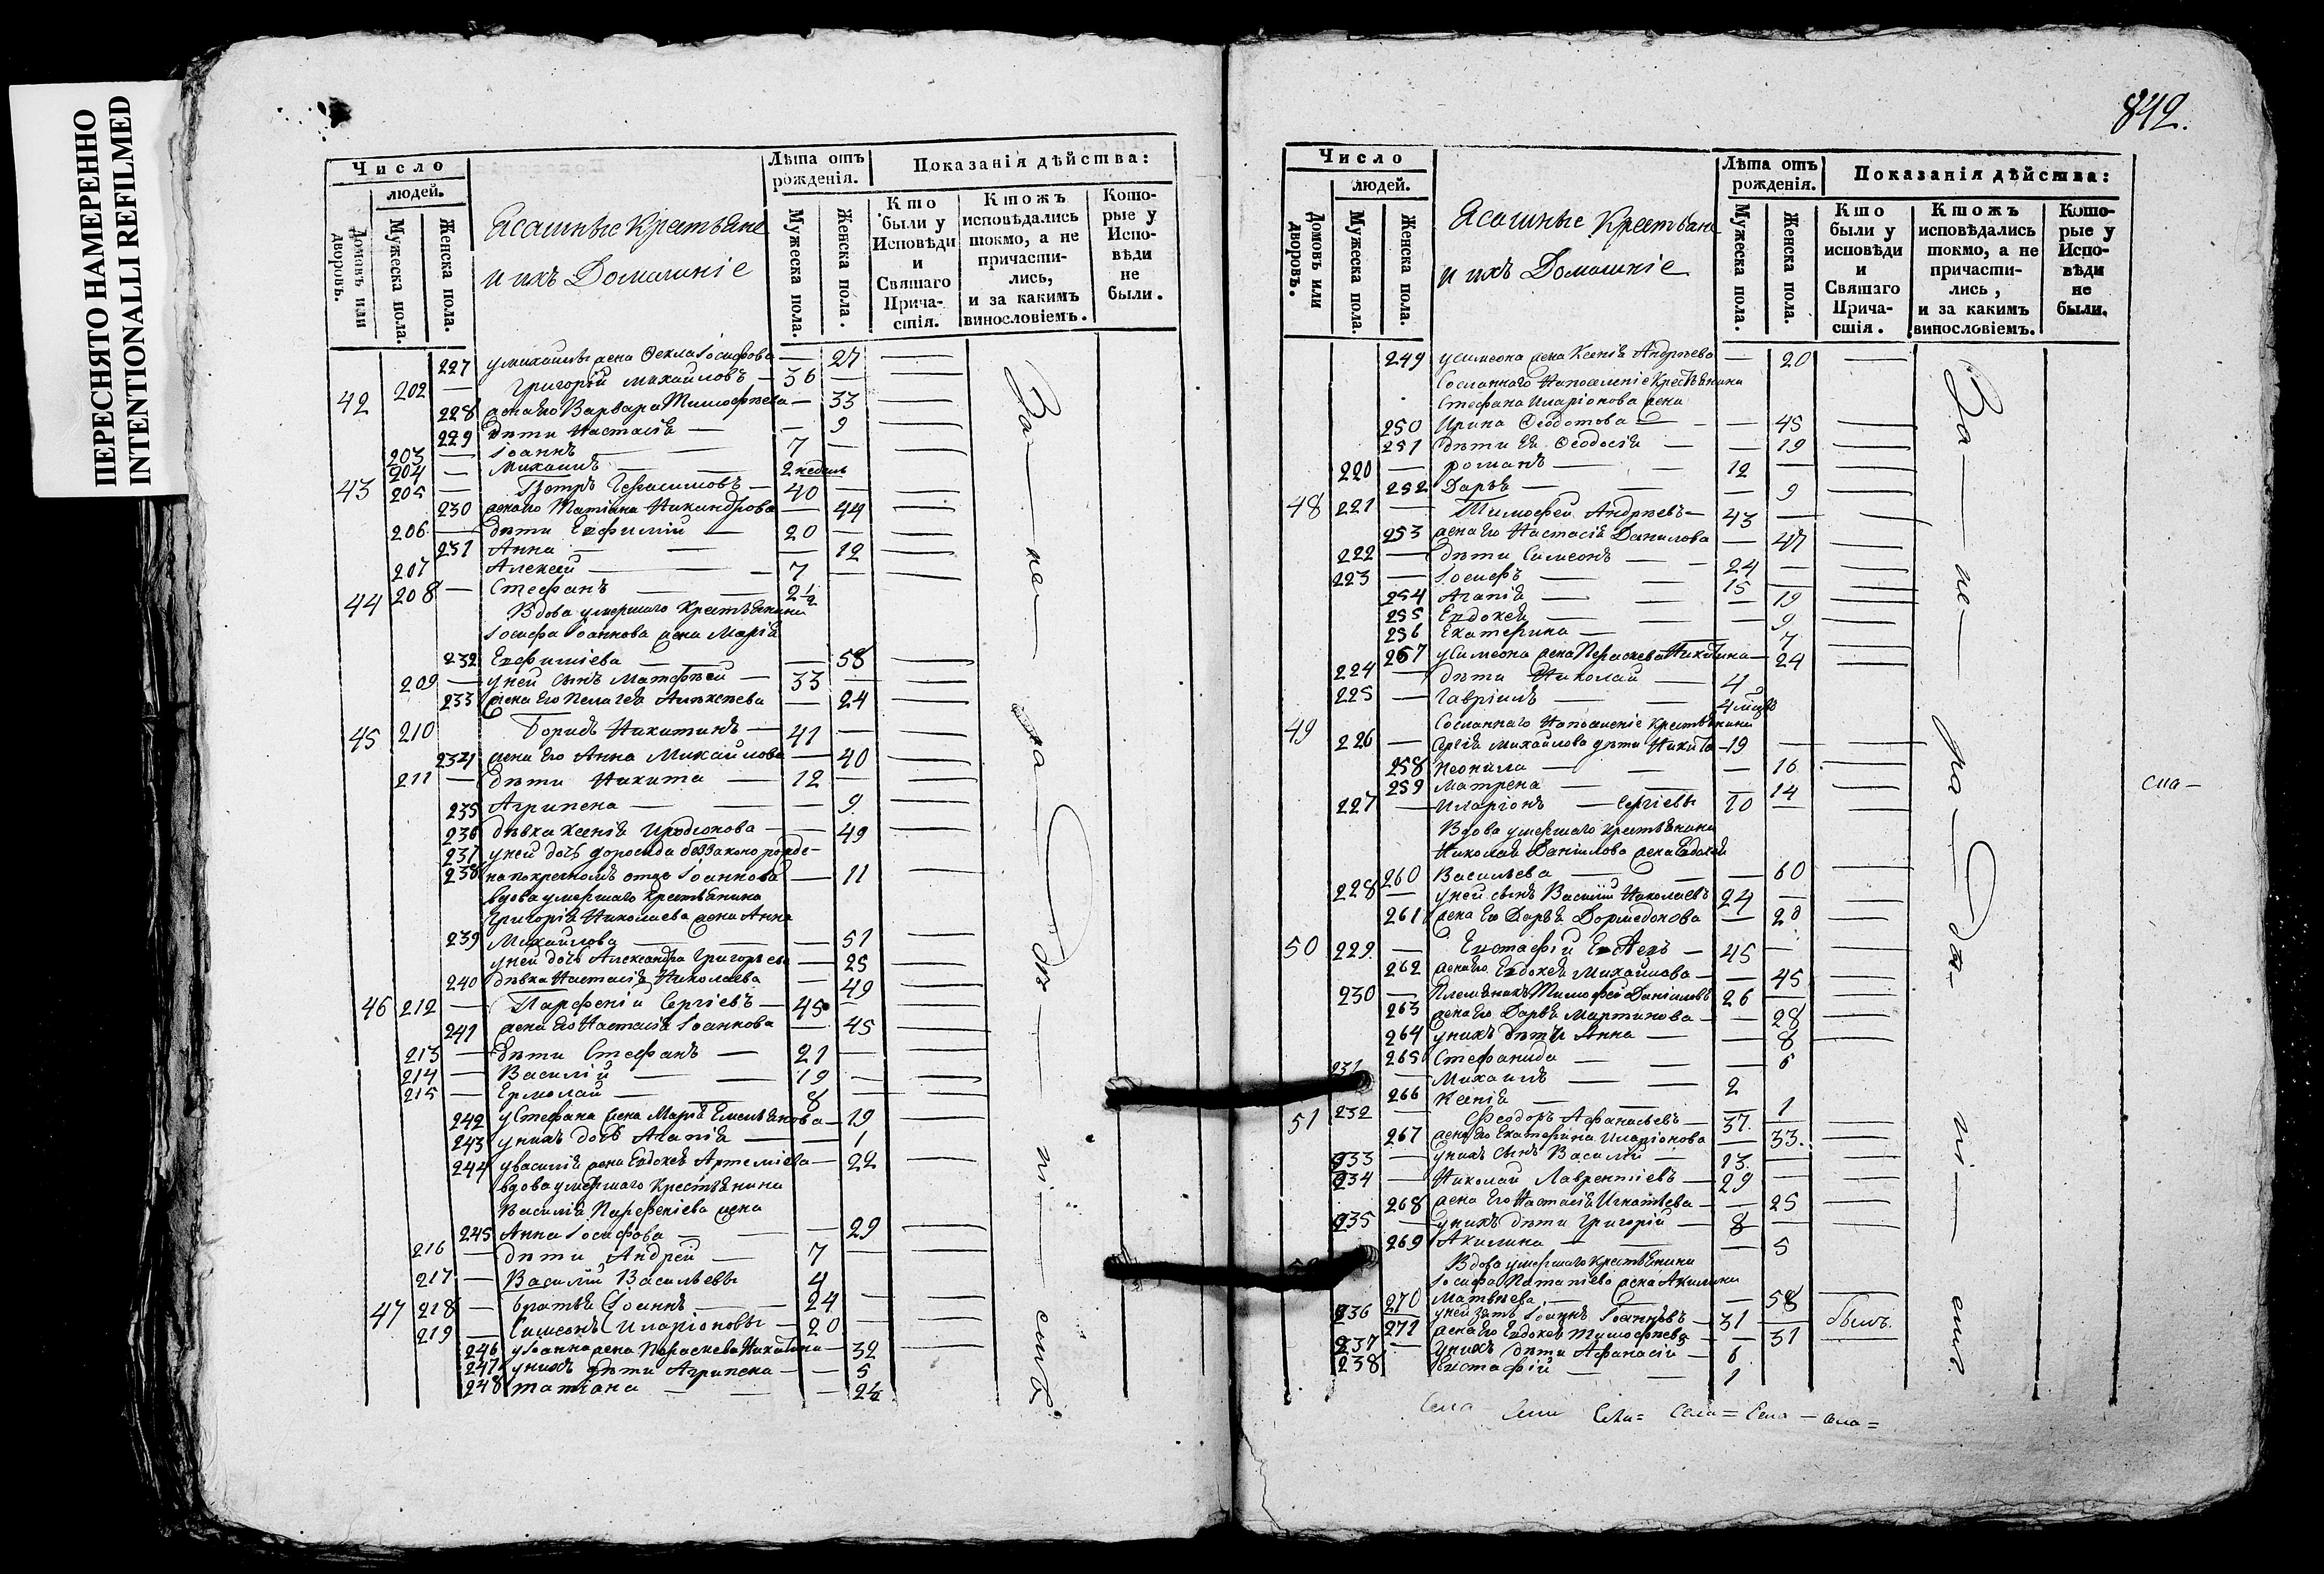 ПЕРЕСНЯТО НАМЕРЕННО
INTENTIONALLI REFILMED
Число
людей.
Домовъ или дворовъ.
Мужеска пола.
Женска пола.
Ясашные Крестьяне
и ихъ Домашніе
Лѣта отъ рожденія.
Мужеска пола.
Женска пола.
Показанія дѣйства:
Кто были у Исповѣди и Святаго Прича-стія.
Ктожъ исповѣдались токмо, а не причасти-лись, и за какимъ винословіемъ.
Кото-рые у Испо-вѣди не были.
227 у михаила жена Фекла Іосифова — 27
42 202 — Григорій михайловъ — 36 —
228 жена Его Варвара Тимофѣева — 33
229 дѣти Настасія — — 9
203 — Іоаннъ — 7 —
204 — Михаилъ — — 2 недѣль
43 205 — Петръ Герасимовъ — 40 —
230 жена Его Татіана Никандрова — 44
206 — дѣти Евфимій — 20 —
231 Анна — — — 12
207 Алексей — — 7 —
44 208 — Стефанъ — — 2½
Вдова умершаго Крестьянина
Іосифа Іоаннова жена Марія
232 Евфиміева — — — 58
209 — у ней сынъ Матфѣй — 33 —
233 жена Его Пелагея Алексѣева — 24
45 210 Борисъ Никитинъ — 41 —
234 жена Его Анна Михайлова — 40
211 — дѣти Никита — 12 —
235 Агрипена — — — 9
236 дѣвка Ксенія Иродіонова — — 49
237 у ней дочь беззаконо рожде-
238 на по крестномъ отцѣ Іоаннова — 11
вдова умершаго Крестьянина
Григорія Николаева жена Анна
239 Михайлова — — — 51
у ней дочь Александра Григорьева — 25
240 дѣвка Настасія Николаева — 49
46 212 — Парфеній Сергіевъ — 45 —
241 жена Его Настасія Іоаннова — 45
213 — дѣти Стефанъ — 21 —
214 — Василій — — 19 —
215 — Ермолай — — 8 —
242 у Стефана жена Марія Емельянова — 19
243 у нихъ дочь Агапія — — 1
244 у василія жена Евдокея Артеміева — 22
вдова умершаго Крестьянина
Василія Парфеніева жена
245 Анна Іосифова — — — 29
216 — дѣти Андрей — 7 —
217 — Василій Васильевы 4
47 218 — братья Іоаннъ — — 24 —
219 — Симеонъ Иларіоновы — 20 —
246 у Іоанна жена Параскева Никитина — 32
247 у нихъ дѣти Агрипена — — 5
248 татіана — — — 2½
За — не — ра — — — — —
842.
Число
людей.
Домовъ или дворовъ.
Мужеска пола.
Женска пола.
Ясашные Крестьяне
и ихъ Домашніе
Лѣта отъ рожденія.
Мужеска пола.
Женска пола.
Показанія дѣйства:
Кто были у исповѣди и Святаго Прича-стія.
Ктожъ исповѣдались токмо, а не причасти-лись, и за какимъ винословіемъ.
Кото-рые у Испо-вѣди не были.
249 у Симеона жена Ксенія Андрѣева — 20
Сосланнаго На поселеніе Крестьянина
Стефана Иларіонова жена
250 Ирина Феодотова — — 45
251 дѣти Ея Феодосія — — 19
220 — романъ — — 12 —
252 Дарья — — — 9
48 221 — Тимофей Андрѣевъ — 43 —
253 жена Его Настасія Данилова — 47
222 — дѣти Симеонъ — — 24 —
223 — Іосифъ — — 15 —
254 Агапія — — — 19
255 Евдокея — — — 9
256 Екатерина — — 7
257 у Симеона жена Параскева Никитина — 24
224 — дѣти Николай — 4
225 — Гавріилъ — —
49 Сосланнаго На поселеніе Крестьянина
226 — Сергія Михайлова дѣти Никита — 19 —
258 Неонила — — — 16
259 Матрена — — — 14
227 — Иларіонъ — Сергіевы 10 —
Вдова умершаго Крестьянина
Николая Даніилова жена Евдокея
260 Васильева — — — 60
228 — у ней сынъ Василій Николаевъ 24 —
261 жена Его Дарья Дормедонова — 20
50 229. — Евстафій — 45 —
262 жена Его Евдокея Михайлова — 45
230 — Племянникъ Тимофей Даніиловъ 26 —
263 жена Его Дарья Мартинова — 28
264 у нихъ дѣти Анна — — 8
265 Стефанида — — — 6
231 — Михаилъ — — 2
266 Ксенія — — — 1
51 232 — Феодоръ Афанасьевъ — 37. —
267 жена Его Екатерина Иларіонова — 33.
233 — у нихъ сынъ Василій — 13. —
234 — Николай Лаврентіевъ — 29 —
268 жена Его Настасія Игнатьева — 25
235 — у нихъ дѣти Григорій — 8 —
269 Акилина — — — 5
Вдова умершаго Крестьянина
Іосифа Потапіева жена Акилина
270 Матвѣева — — — 58
236 у ней зять Іоаннъ Іоанновъ — 31 — былъ.
271 жена Его Евдокея Тимофѣева — 31
237 — у нихъ дѣти Афанасій — 6
238 Евстафій — — 1
За — не — ра — — — —
сла —
Села Села = Села = Села — села =